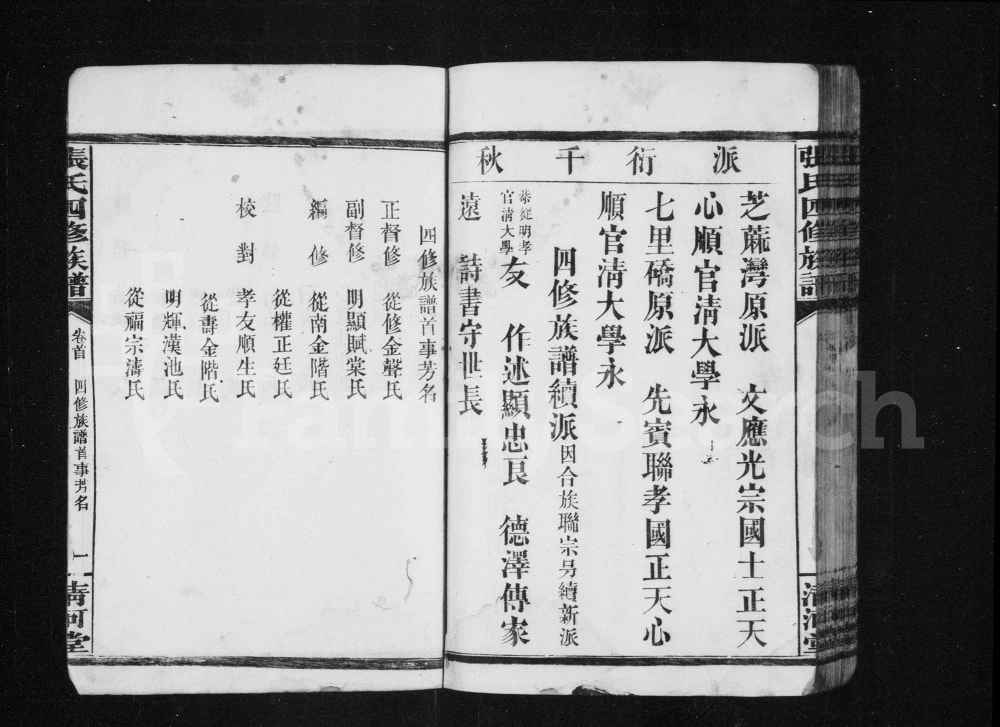 張氏四修族譜
清河堂
派衍千秋
芝蔴灣原派 文應光宗國士正天
心順官清大學永
七里礄原派 先賓聯孝國正天心
順官清大學永
四修族譜續派因合族聯宗另續新派
崇從明孝
官清大學
友 作述顯忠良 德澤傳家
遠 詩書守世長
四修族譜首事芳名
正督修 從修金聲氏
副督修 明顯賦棠氏
編修 從南金階氏
從權正廷氏
校對 孝友順生氏
從壽金階氏
明輝漢池氏
從福宗濤氏
張氏四修族譜
卷首 四修族譜首事芳名
一
清河堂
FamilySearch